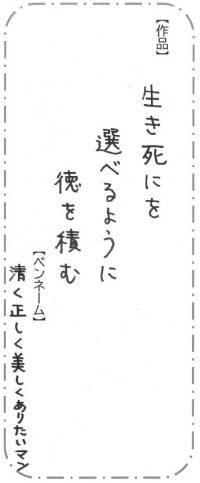 【作品】
生き死にを
選べるように
徳を積む
【ペンネーム】
清く正しく美しくありたいマン